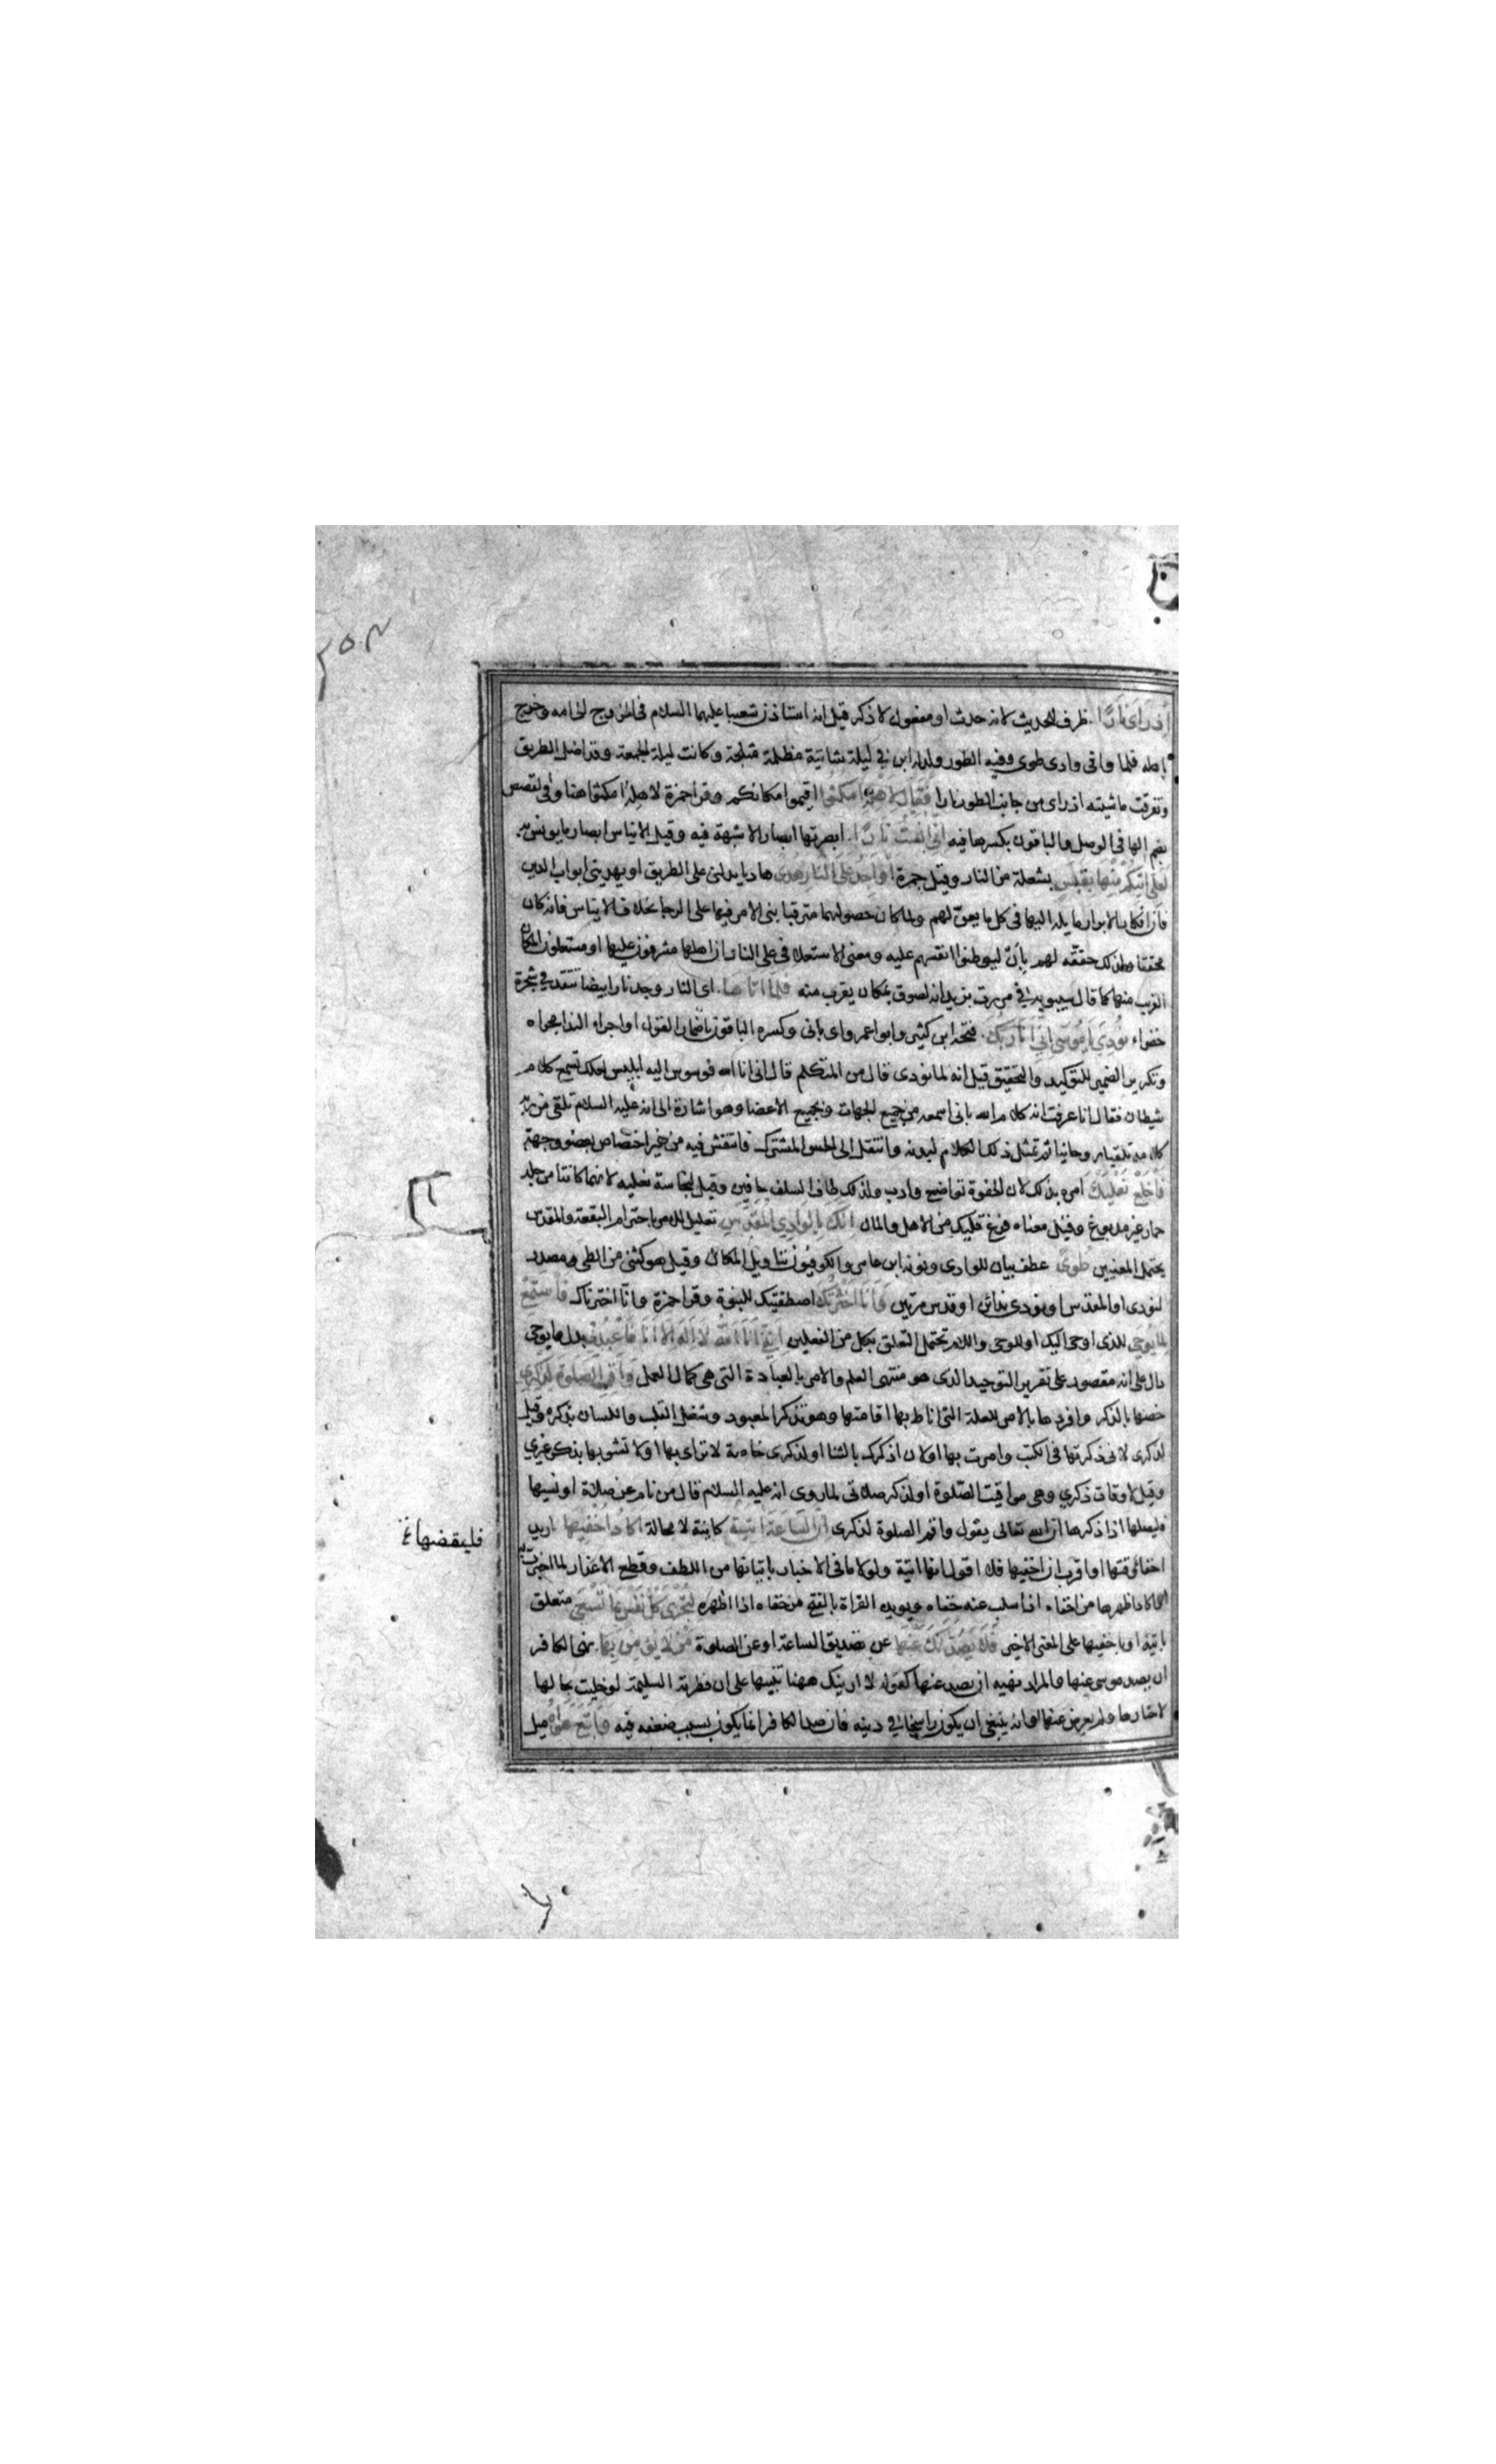 اذ راى نارا ظرف للحديث لانه حدث او مفعول لاذكر قيل انه استاذن شعيبا عليهما السلام فى الخروج الى امه وخرج
باهله فلما وافى وادى طوى وفيه الطور ولد له ابن في ليلة شاتية مظلمة مثلجة وكانت ليلة الجمعة وقد اضل الطريق
وتفرقت ماشيته اذ راى من جانب الطور نارا فقال لاهله امكثوا اقيموا مكانكم وقرا حمزة لاهله امكثوا هنا وفى القصص
بضم الها فى الوصل والباقون بكسرها فيه انى انست نارا ابصرتها ابصارا لا شبهة فيه وقيل الايناس ابصار ما يونس به
لعلى اتيكم منها بقبس بشعلة من النار وقيل جمرة او اجد على النار هدى هاديا يدلنى على الطريق او يهدينى ابواب الدين
فان افكار الابرار مايلة اليها فى كل ما يعن لهم ولما كان حصولهما مترقبا بنى الامر فيهما على الرجا بخلاف الايناس فانه كان
محققا ولذلك حققه لهم بان ليوطنوا انفسهم عليه ومعنى الاستعلا فى على النار ان اهلها مشرفون عليها او مستعلون المكان
القريب منها كما قال سيبويه في مررت بزيد انه لصوق بمكان يقرب منه فلما اتاها اى النار وجد نارا بيضا تتقد في شجرة
خضراء نودى يا موسى انى انا ربك فتحه ابن كثير وابو عمرو اى بانى وكسره الباقون باضمار القول او اجراء الندا مجراه
وتكرير الضمير للتوكيد والتحقيق قيل انه لما نودى قال من المتكلم قال انى انا الله فوسوس اليه ابليس لعلك تسمع كلام
شيطان فقال انا عرفت انه كلام الله بانى اسمعه من جميع الجهات وبجميع الاعضا وهو اشارة الى انه عليه السلام تلقى من ربه
كلامه تلقيا روحانيا ثم تمثل ذلك الكلام لبدنه وانتقل الى الحس المشترك فانتقش فيه من غير اختصاص بعضو وجهة
فاخلع نعليك امره بذلك لان الحفوة تواضع وادب ولذلك طاف السلف حافين وقيل لنجاسة نعليه لانهما كانتا من جلد
حمار غير مدبوغ وقيل معناه فرغ قلبك من الاهل والمال انك بالوادى المقدس تعليل للامر باحترام البقعة والمقدس
يحتمل المعنيين طوى عطف بيان للوادى ونونه ابن عامر والكوفيون بتاويل المكان وقيل هو كثنى من الطى مصدر
لنودى او المقدس اى نودى ندائين او قدس مرتين وانا اخترتك اصطفيتك للنبوة وقرا حمزة وانا اخترناك فاستمع
لما يوحى للذى اوحى اليك او للوحى واللام تحتمل التعلق بكل من الفعلين اننى انا الله لا اله الا انا فاعبدنى بدل مما يوحى
دال على انه مقصود على تقرير التوحيد الذى هو منتهى العلم والامر بالعبادة التى هى كمال العمل واقم الصلوة لذكرى
خصها بالذكر وافردها بالامر للعلة التى اناط بها اقامتها وهو تذكر المعبود وشغل القلب واللسان بذكره وقيل
لذكرى لانى ذكرتها فى الكتب وامرت بها او لان اذكرك بالثنا او لذكرى خاصة لا تراى بها ولا تشوبها بذكر غيري
وقيل لاوقات ذكري وهى مواقيت الصلوة او لذكر صلاتى لما روى انه عليه السلام قال من نام عن صلاة او نسيها
فليصلها اذا ذكرها ان الله تعالى يقول واقم الصلوة لذكرى ان الساعة اتية كاينة لا محالة اكاد اخفيها اريد
اخفا وقتها او اقرب ان اخفيها فلا اقول انها اتية ولولا ما فى الاخبار باتيانها من اللطف وقطع الاعذار لما اخبرت به
او اكاد اظهرها من اخفاه اذا سلب عنه خفاه ويويده القراة بالفتح من خفاه اذا اظهره لتجزى كل نفس بما تسعى متعلق
باتية او باخفيها على المعنى الاخير فلا يصدنك عنها عن تصديق الساعة او عن الصلوة من لا يؤمن بها نهى الكافر
ان يصد موسى عنها والمراد نهيه ان يصد عنها كقوله لا ارينك ههنا تنبيها على ان فطرته السليمة لو خليت بحالها
لاختارها ولم يعرض عنها وانه ينبغى ان يكون راسخا في دينه فان صد الكافر انما يكون بسبب ضعفه فيه واتبع هواه ميل
فليقضها